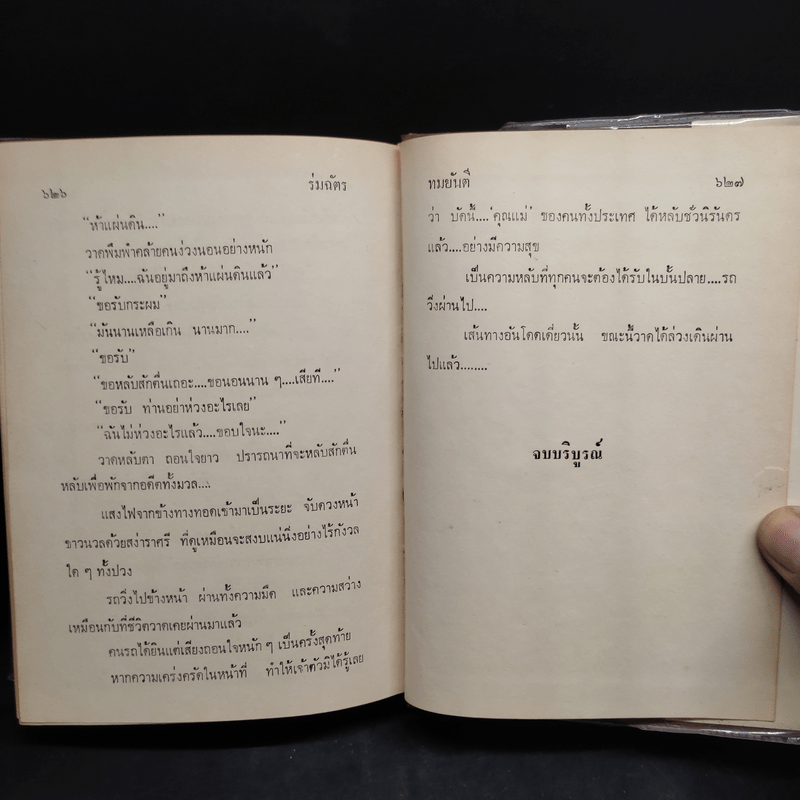 ๖๒๖ ร่มฉัตร
“ห้าแผ่นดิน....”
วาดพึมพำคล้ายคนง่วงนอนอย่างหนัก
“รู้ไหม....ฉันอยู่มาถึงห้าแผ่นดินแล้ว”
“ขอรับกระผม”
“มันนานเหลือเกิน นานมาก....”
“ขอรับ”
“ขอหลับสักตื่นเถอะ....ขอนอนนาน ๆ....เสียที....”
“ขอรับ ท่านอย่าห่วงอะไรเลย”
“ฉันไม่ห่วงอะไรแล้ว....ขอบใจนะ....”
วาดหลับตา ถอนใจยาว ปรารถนาที่จะหลับสักตื่น
หลับเพื่อพักจากอดีตทั้งมวล....
แสงไฟจากข้างทางทอดเข้ามาเป็นระยะ จับดวงหน้า
ขาวนวลด้วยสง่าราศรี ที่ดูเหมือนจะสงบแน่นิ่งอย่างไร้กังวล
ใด ๆ ทั้งปวง
รถวิ่งไปข้างหน้า ผ่านทั้งความมืด และความสว่าง
เหมือนกับที่ชีวิตวาดเคยผ่านมาแล้ว
คนรถได้ยินแต่เสียงถอนใจหนัก ๆ เป็นครั้งสุดท้าย
หากความเคร่งครัดในหน้าที่ ทำให้เจ้าตัวมิได้รู้เลย
ทมยันตี ๖๒๗
ว่า บัดนี้....‘คุณแม่’ ของคนทั้งประเทศ ได้หลับชั่วนิรันดร
แล้ว....อย่างมีความสุข
เป็นความหลับที่ทุกคนจะต้องได้รับในบั้นปลาย....รถ
วิ่งผ่านไป....
เส้นทางอันโดดเดี่ยวนั้น ขณะนี้วาดได้ล่วงเดินผ่าน
ไปแล้ว........
จบบริบูรณ์